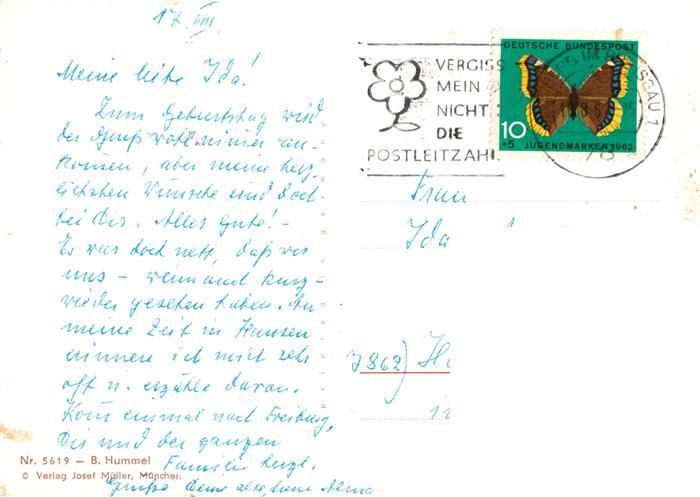 17. VIII.
Meine liebe Ida!
Zum Geburtstag wird
der Gruß wohl nimmer an-
kommen, aber meine herz-
lichsten Wünsche sind doch
bei Dir. Alles Gute! -
Es war doch nett, daß wir
uns - wenn auch kurz -
wieder gesehen haben. An
meine Zeit in Hausen
erinnere ich mich sehr
oft u. erzähle davon.
Komm einmal nach Freiburg,
Dir und der ganzen
Familie herzl.
Grüße Deine alte, treue
Nr. 5619 — B. Hummel
© Verlag Josef Müller, München
VERGISS
MEIN
NICHT
DIE
POSTLEITZAHL
DEUTSCHE BUNDESPOST
10
+5 JUGENDMARKEN 1962
78
Frau
Ida
7862) H